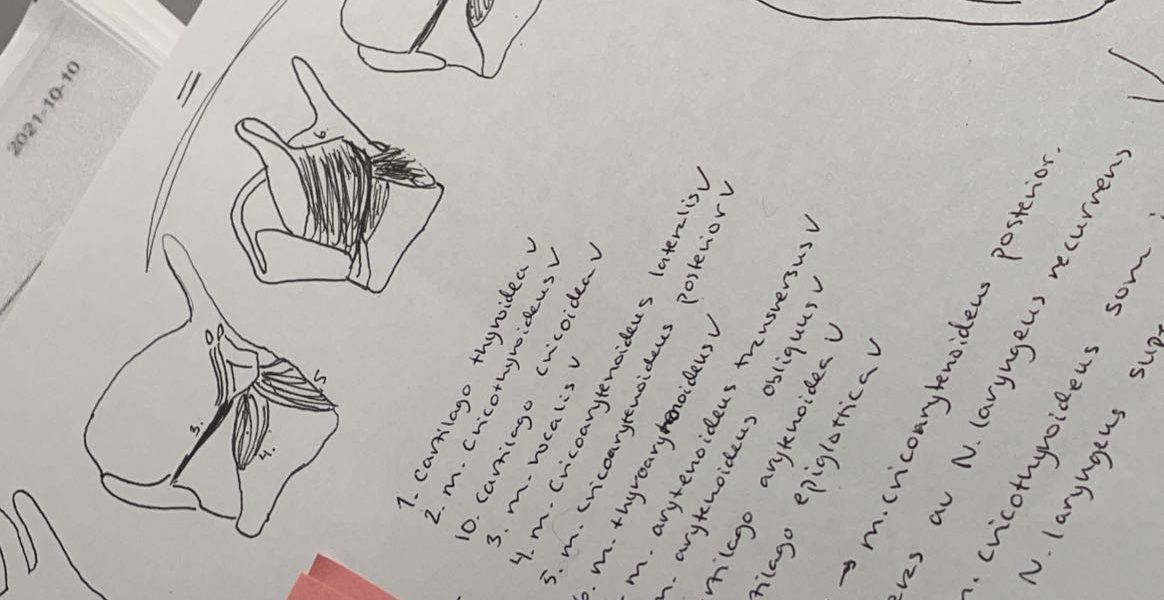 2021-10-10
6.
5
3.
4.
1. Cartilago thyroidea ✓
2. m. cricothyroideus ✓
10. cartilago cricoidea ✓
3. m. vocalis ✓
4. m. cricoarytenoideus lateralis ✓
5. m. cricoarytenoideus posterior ✓
6. m. thyroarytenoideus ✓
m. arytenoideus transversus ✓
arytenoideus obliquus ✓
arytenoidea ✓
epiglottica ✓
→ m. cricoarytenoideus posterior.
av N. laryngeus recurrens
cricothyroideus som
N. laryngeus